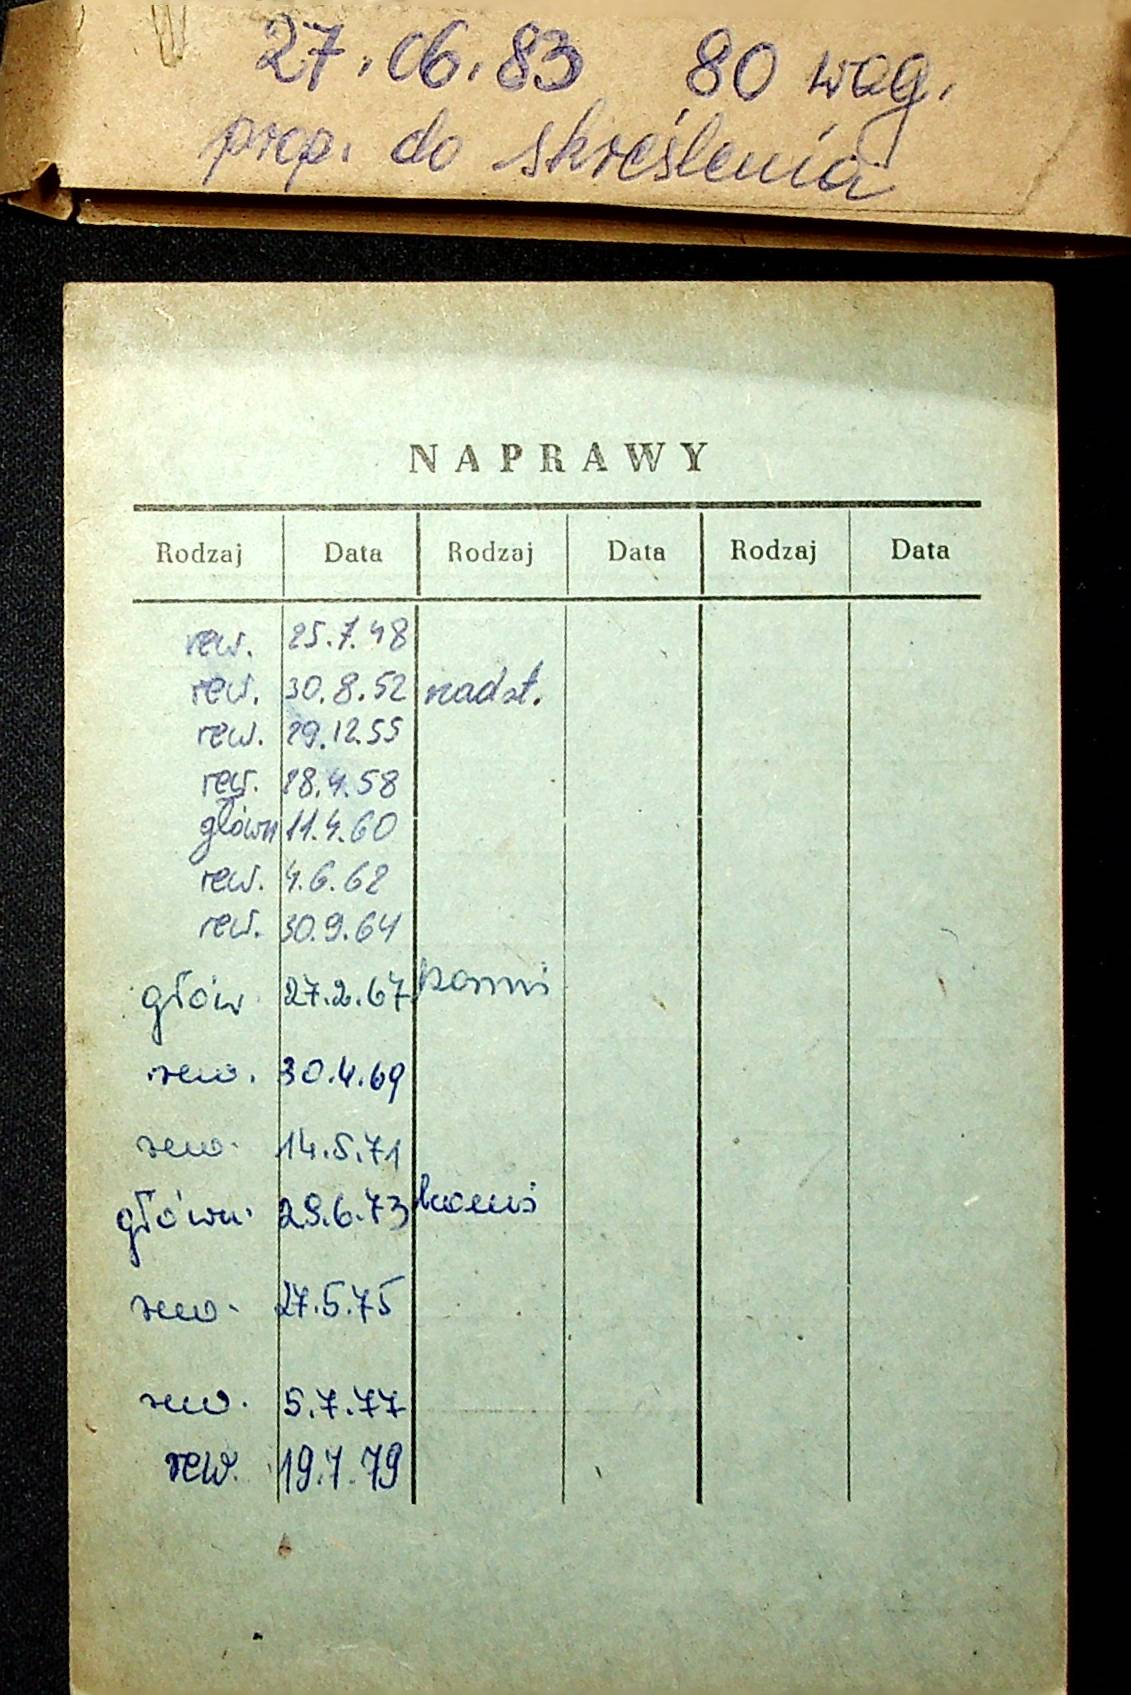 27.06.83 80 wag.
prop. do skreślenia
NAPRAWY
Rodzaj Data Rodzaj Data Rodzaj Data
rew. 25.7.48
rew. 30.8.52 nadst.
rew. 29.12.55
rew. 28.4.58
główn 11.4.60
rew. 4.6.62
rew. 30.9.64
głów 27.2.67
rew. 30.4.69
rew. 14.5.71
główn. 29.6.73
rew. 27.5.75
rew. 5.7.77
rew. 19.7.79